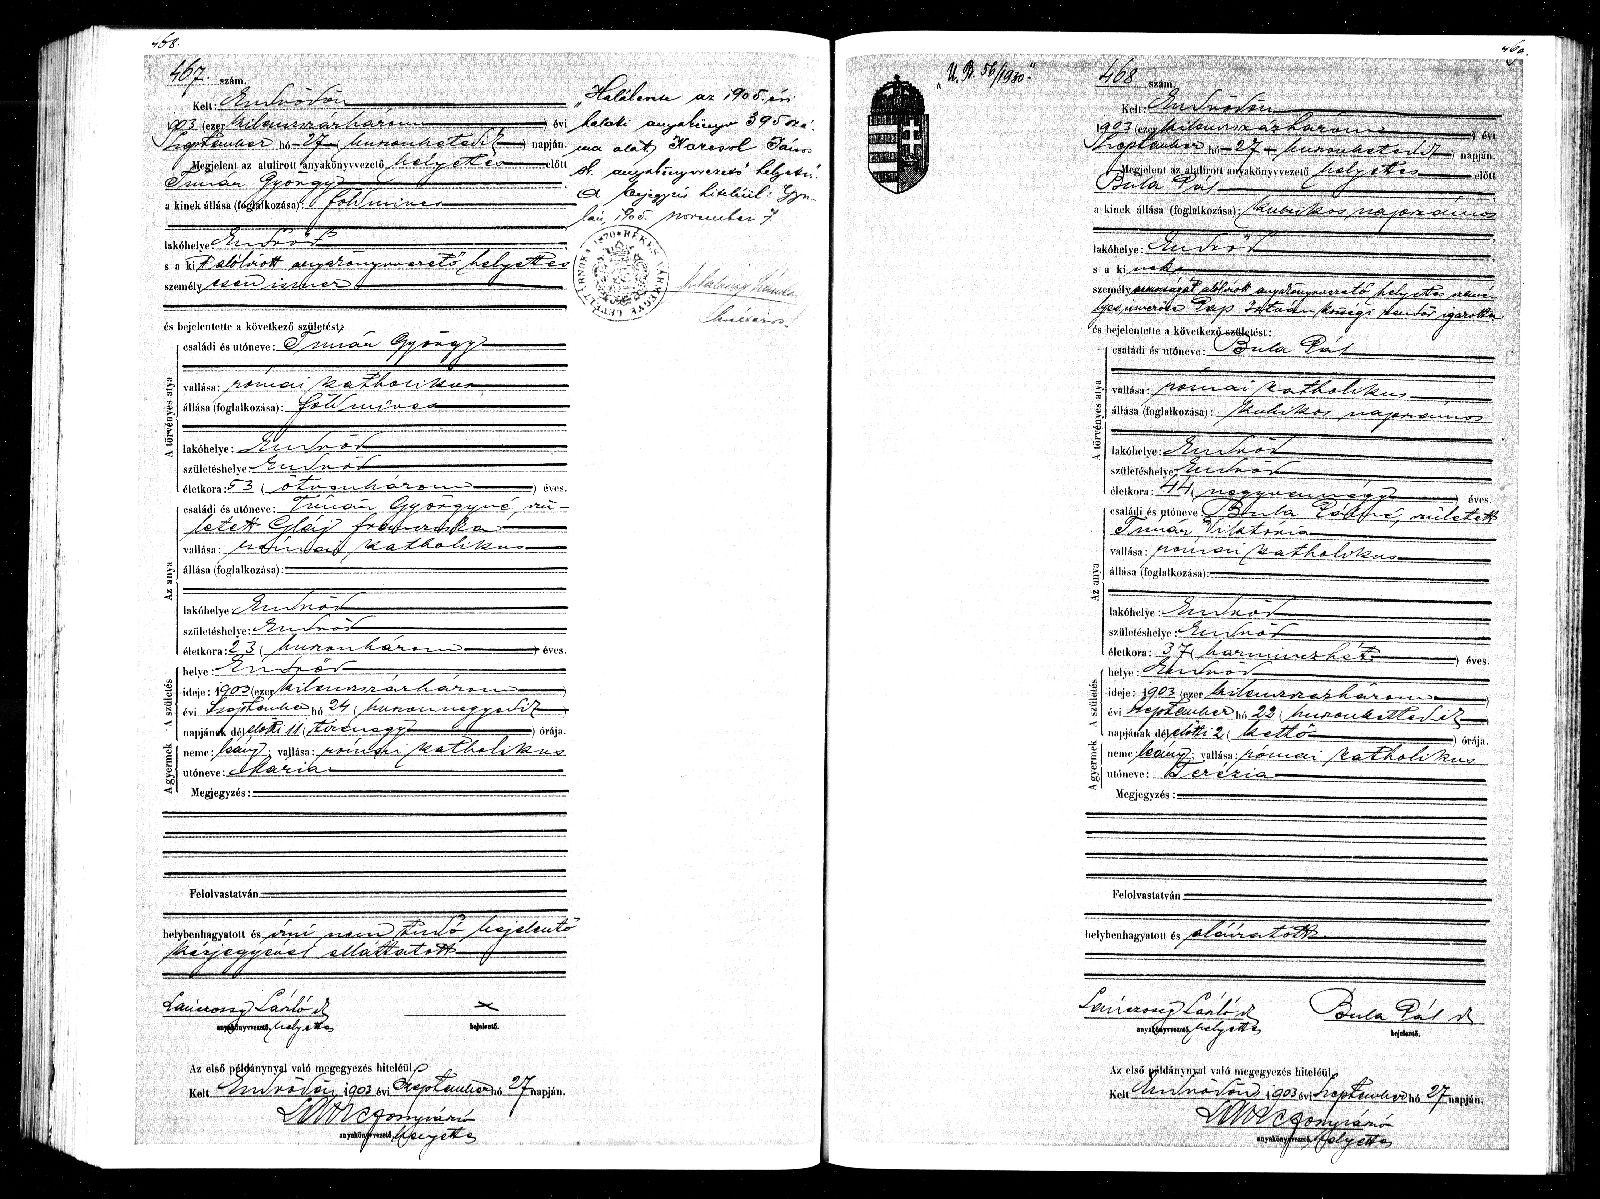 468.
467. szám.
Kelt: Endrődön
1903 (ezer kilenczszázhárom) évi
Szeptember hó 27 (huszonhetedik) napján.
Megjelent az alulirott anyakönyvvezető helyettes előtt
Timár György
a kinek állása (foglalkozása): földmives
lakóhelye Endrőd
s a kit alólirott anyakönyvvezető helyettes
személyesen ismer
és bejelentette a következő születést:
A törvényes atya
családi és utóneve: Timár György
vallása: római katholikus
állása (foglalkozása): földmives
lakóhelye: Endrőd
születéshelye Endrőd
életkora: 53 (ötvenhárom) éves.
Az anya
családi és utóneve: Timár Györgyné, szü-
letett Gláj Franciska
vallása: római katholikus
állása (foglalkozása):
lakóhelye Endrőd
születéshelye: Endrőd
életkora: 23 (huszonhárom) éves.
A születés
helye Endrőd
ideje: 1903 (ezer kilenczszázhárom)
évi Szeptember hó 24 (huszonnegyedik)
napjának délelőtti 11 (tizenegy) órája.
A gyermek
neme: leány; vallása: római katholikus
utóneve: Mária
Megjegyzés:
Felolvastatván
helybenhagyatott és írni nem tudó bejelentő
kézjegyével elláttatott
Lanczossy László
anyakönyvvezető helyettes
x
bejelentő.
Az első példánynyal való megegyezés hiteléül
Kelt Endrődön 1903 évi Szeptember hó 27 napján.
anyakönyvvezető helyettes
"Halálesete az 1905. évi
halotti anyakönyv 395 szá-
ma alatt Karcsol János
s. anyakönyvvezető helyettes.
A bejegyzés hiteléül: Gyu-
lán, 1905. november 7
BÉKÉS VÁRMEGYE LEVÉLTÁRNOKA 1870
469.
"U. B. 56/1930."
468 szám.
Kelt: Endrődön
1903 (ezer kilenczszázhárom) évi
Szeptember hó 27 (huszonhetedik) napján.
Megjelent az alulirott anyakönyvvezető helyettes előtt
Bula Pál
a kinek állása (foglalkozása): kubikos napszámos
lakóhelye: Endrőd
s a kinek
személyazonosságát alólirott anyakönyvvezető helyettes szemé-
lyes ismerőse Pap István községi rendőr igazolta
és bejelentette a következő születést:
A törvényes atya
családi és utóneve: Bula Pál
vallása: római katholikus
állása (foglalkozása): kubikos napszámos
lakóhelye: Endrőd
születéshelye Endrőd
életkora: 44 (negyvennégy) éves.
Az anya
családi és utóneve Bula Pálné, született
Timár Viktória
vallása: római katholikus
állása (foglalkozása):
lakóhelye: Endrőd
születéshelye: Endrőd
életkora: 37 (harminczhét) éves.
A születés
helye: Endrőd
ideje: 1903 (ezer kilenczszázhárom)
évi Szeptember hó 22 (huszonkettedik)
napjának délelőtti 2 (kettő) órája.
A gyermek
neme: leány; vallása: római katholikus
utóneve: Terézia
Megjegyzés:
Felolvastatván
helybenhagyatott és aláiratott
Lanczossy László
anyakönyvvezető helyettes
Bula Pál
bejelentő.
Az első példánynyal való megegyezés hiteléül
Kelt Endrődön 1903 évi Szeptember hó 27 napján.
anyakönyvvezető helyettes